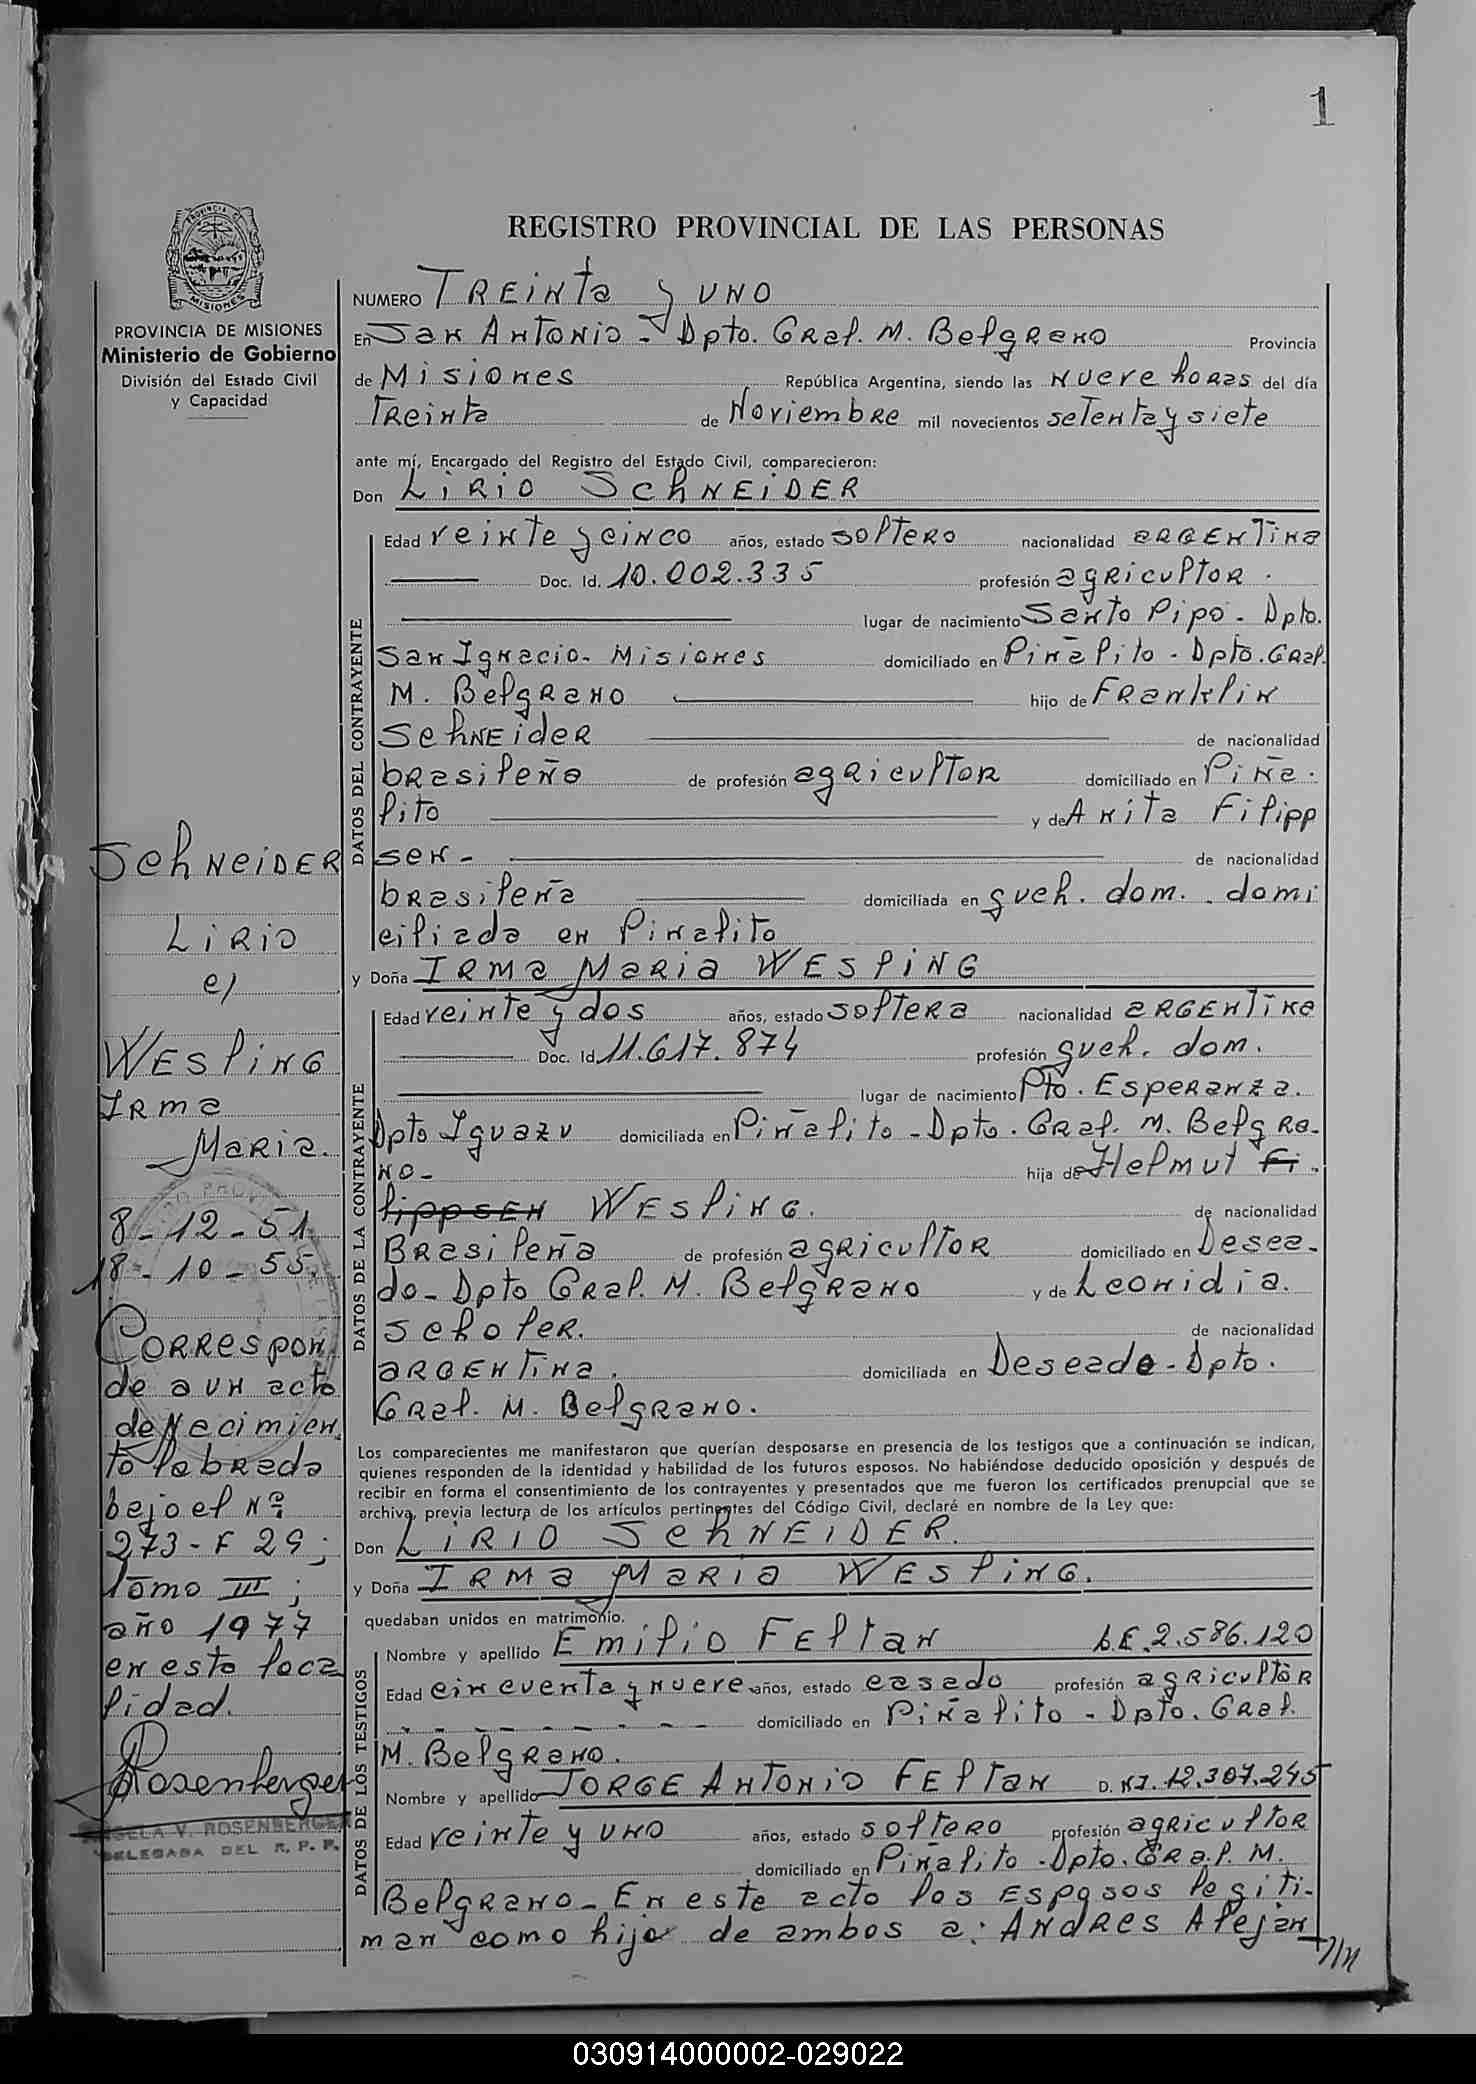 1
PROVINCIA DE MISIONES
Ministerio de Gobierno
División del Estado Civil
y Capacidad
REGISTRO PROVINCIAL DE LAS PERSONAS
NUMERO Treinta y uno
En San Antonio - Dpto. Gral. M. Belgrano Provincia
de Misiones República Argentina, siendo las nueve horas del día
Treinta de Noviembre mil novecientos setenta y siete
ante mí, Encargado del Registro del Estado Civil, comparecieron:
Don LIRIO SCHNEIDER
DATOS DEL CONTRAYENTE
Edad veinte y cinco años, estado soltero nacionalidad argentina
Doc. Id. 10.002.335 profesión agricultor.
lugar de nacimiento Santo Pipó - Dpto.
San Ignacio - Misiones domiciliado en Piñalito - Dpto. Gral.
M. Belgrano hijo de Franklin
Schneider de nacionalidad
brasileña de profesión agricultor domiciliado en Piña-
lito y de Anita Filipp
sen - de nacionalidad
brasileña domiciliada en queh. dom. . domi
ciliada en Piñalito
y Doña IRMA MARIA WESLING
DATOS DE LA CONTRAYENTE
Edad veinte y dos años, estado soltera nacionalidad argentina
Doc. Id. 11.617.874 profesión queh. dom.
lugar de nacimiento Pto. Esperanza.
Dpto Iguazu domiciliada en Piñalito - Dpto. Gral. M. Belgra-
no - hija de Helmut Fi-
lippsen WESLING. de nacionalidad
Brasileña de profesión agricultor domiciliado en Desea-
do - Dpto Gral. M. Belgrano y de Leonidia.
Scholer. de nacionalidad
argentina. domiciliada en Deseado - Dpto.
Gral. M. Belgrano.
Los comparecientes me manifestaron que querían desposarse en presencia de los testigos que a continuación se indican,
quienes responden de la identidad y habilidad de los futuros esposos. No habiéndose deducido oposición y después de
recibir en forma el consentimiento de los contrayentes y presentados que me fueron los certificados prenupcial que se
archiva, previa lectura de los artículos pertinentes del Código Civil, declaré en nombre de la Ley que:
Don LIRIO SCHNEIDER.
y Doña IRMA MARIA WESLING.
quedaban unidos en matrimonio.
DATOS DE LOS TESTIGOS
Nombre y apellido Emilio Feltan L.E. 2.586.120
Edad cincuenta y nueve años, estado casado profesión agricultor
domiciliado en Piñalito - Dpto. Gral.
M. Belgrano.
Nombre y apellido JORGE ANTONIO FELTAN D.NI. 12.307.245
Edad veinte y uno años, estado soltero profesión agricultor
domiciliado en Piñalito - Dpto. Gral. M.
Belgrano - En este acto los esposos legiti-
man como hijo de ambos a: ANDRES Alejan
///
Schneider
Lirio
c/
Wesling
Irma
Maria.
8 - 12 - 51
18 - 10 - 55.
Correspon
de a un acto
de Nacimien
to labrada
bajo el Nº
273 - F 29;
Tomo III;
año 1977
en esta loca
lidad.
Rosenberger
ANGELA V. ROSENBERGER
DELEGADA DEL R. P. P.
030914000002-029022